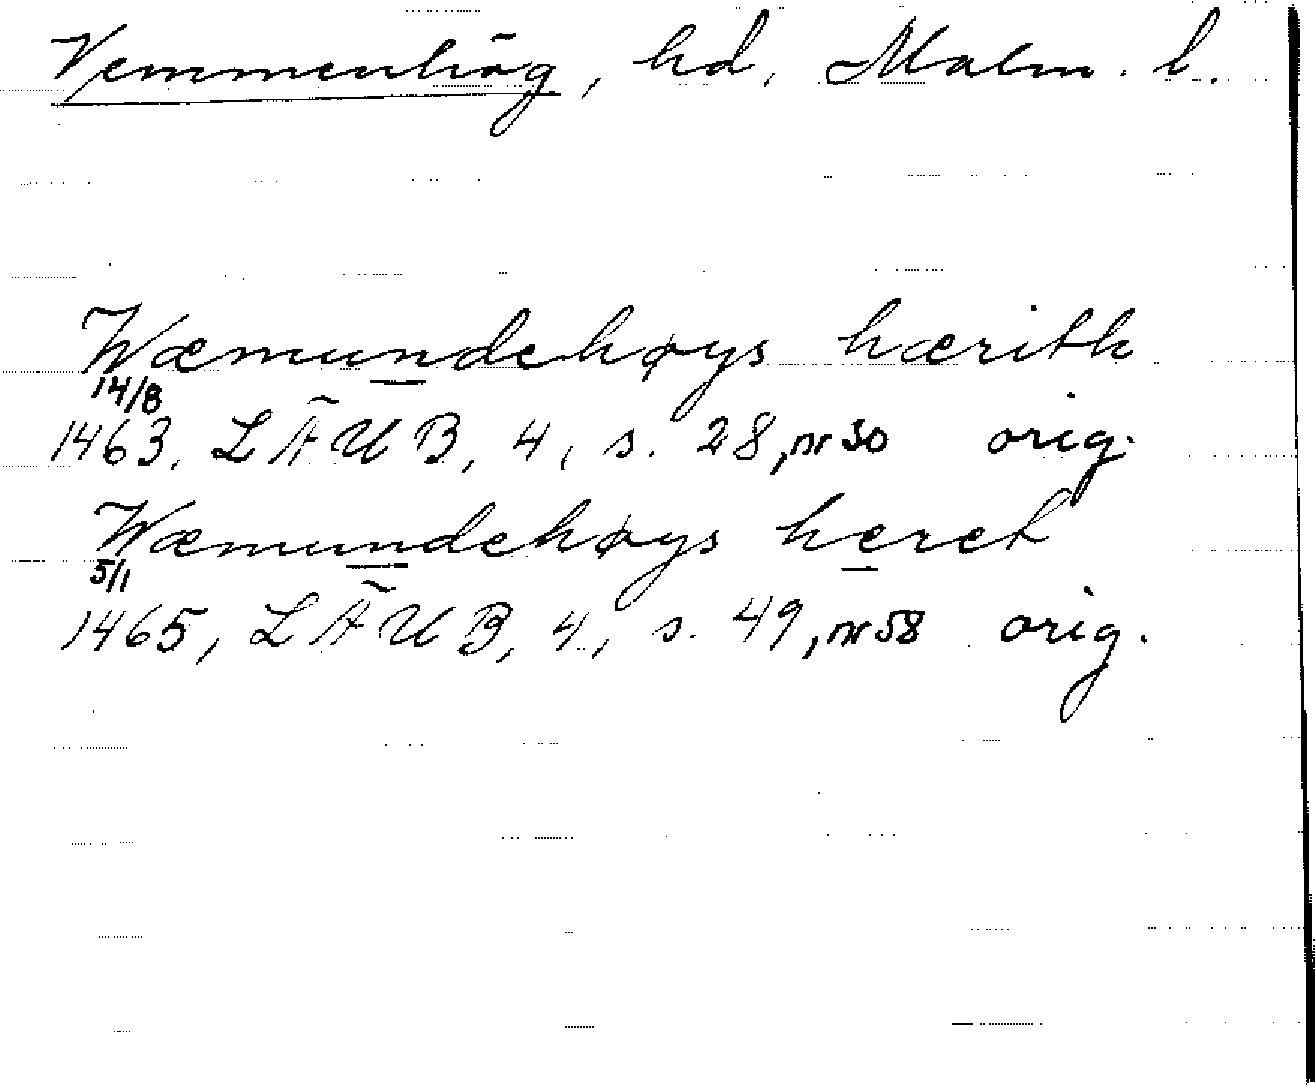 Vemmenhög, hd, Malm. l.
Wæmundehøys hærith
14/8
1463, LÄUB, 4, s. 28, nr 30 orig.
Wæmundehøys heret
5/1
1465, LÄUB, 4, s. 49, nr 58 orig.